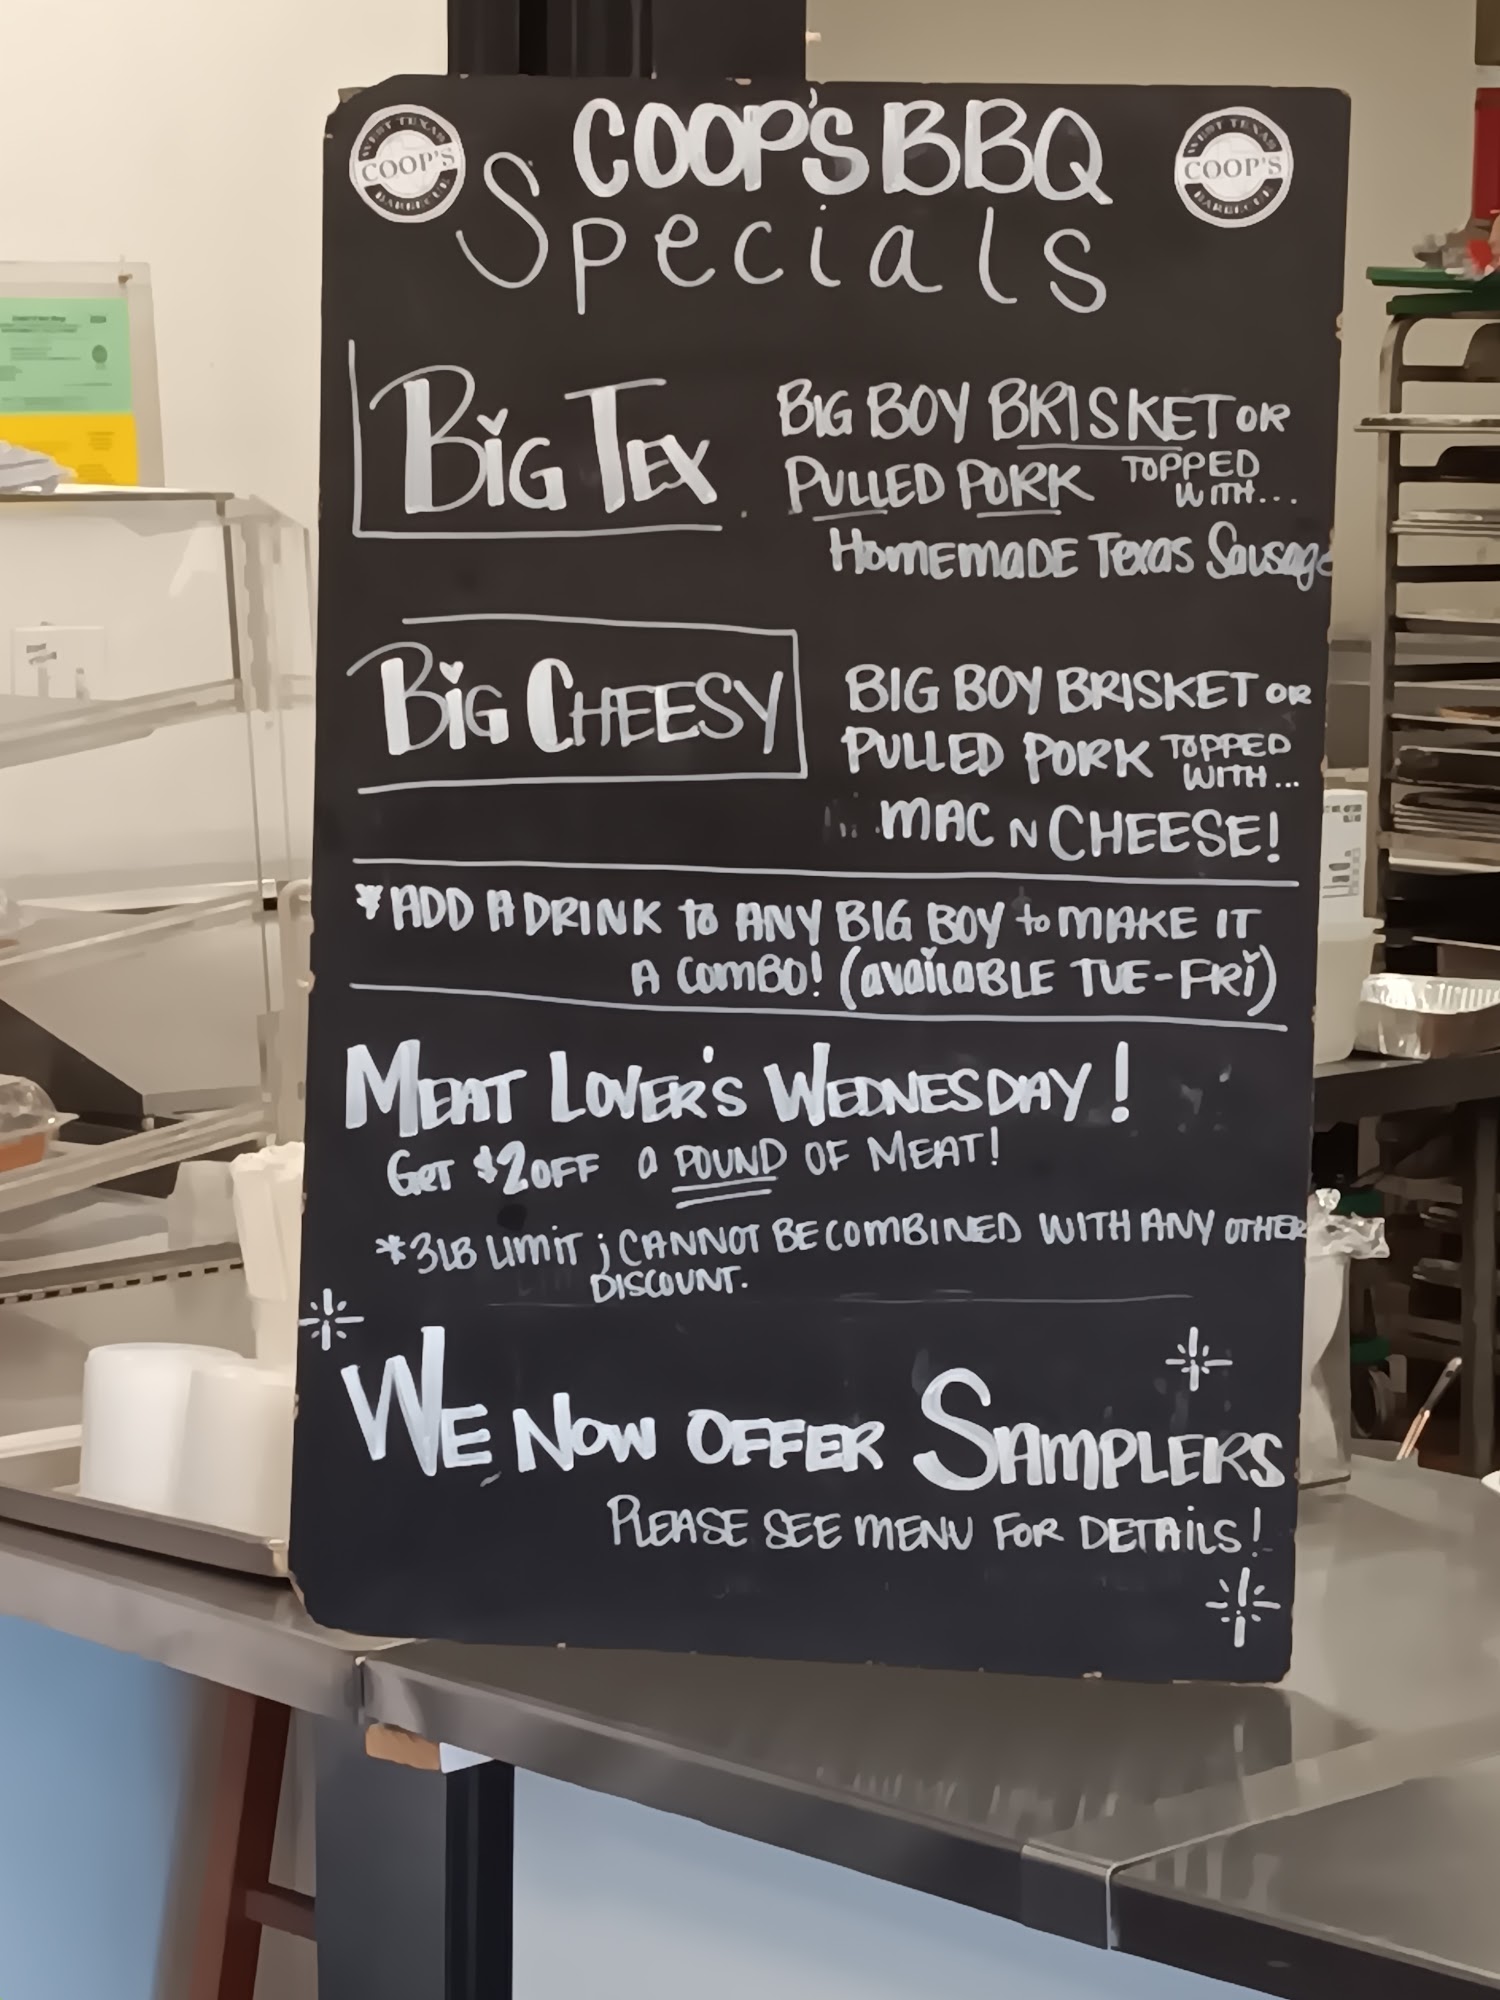 WEST TEXAS
COOP'S
BARBECUE
COOP'S BBQ
Specials
WEST TEXAS
COOP'S
BARBECUE
BiG TEX
BIG BOY BRISKET OR
PULLED PORK TOPPED WITH...
HOMEMADE TEXAS SAUSAGE
BiG CHEESY
BIG BOY BRISKET OR
PULLED PORK TOPPED WITH...
MAC N CHEESE!
*ADD A DRINK to ANY BIG BOY to MAKE IT
A COMBO! (availaBLE TUE-FRi)
MEAT LOVER'S WEDNESDAY!
GET $2 OFF a POUND OF MEAT!
*3LB LIMIT ; CANNOT BE COMBINED WITH ANY OTHER
DISCOUNT.
WE NOW OFFER SAMPLERS
PLEASE SEE MENU FOR DETAiLS!